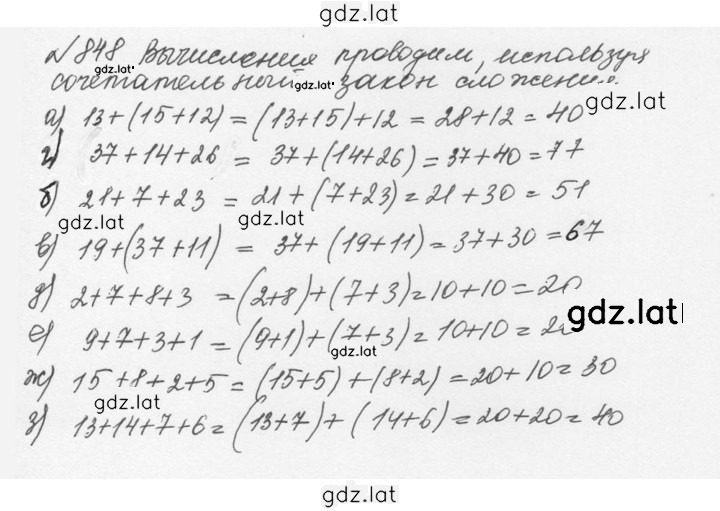 gdz.lat
№848 Вычисления проводим, используя
gdz.lat
сочетательный закон сложени.
gdz.lat
gdz.lat
а) 13+(15+12) = (13+15)+12 = 28+12 = 40
г) 37+14+26 = 37+(14+26) = 37+40 = 77
б) 21+7+23 = 21+(7+23) = 21+30 = 51
gdz.lat gdz.lat
в) 19+(37+11) = 37+(19+11) = 37+30 = 67
д) 2+7+8+3 = (2+8)+(7+3) = 10+10 = 20
gdz.lat
е) 9+7+3+1 = (9+1)+(7+3) = 10+10 = 20
gdz.lat
ж) 15+8+2+5 = (15+5)+(8+2) = 20+10 = 30
gdz.lat
з) 13+14+7+6 = (13+7)+(14+6) = 20+20 = 40
gdz.lat